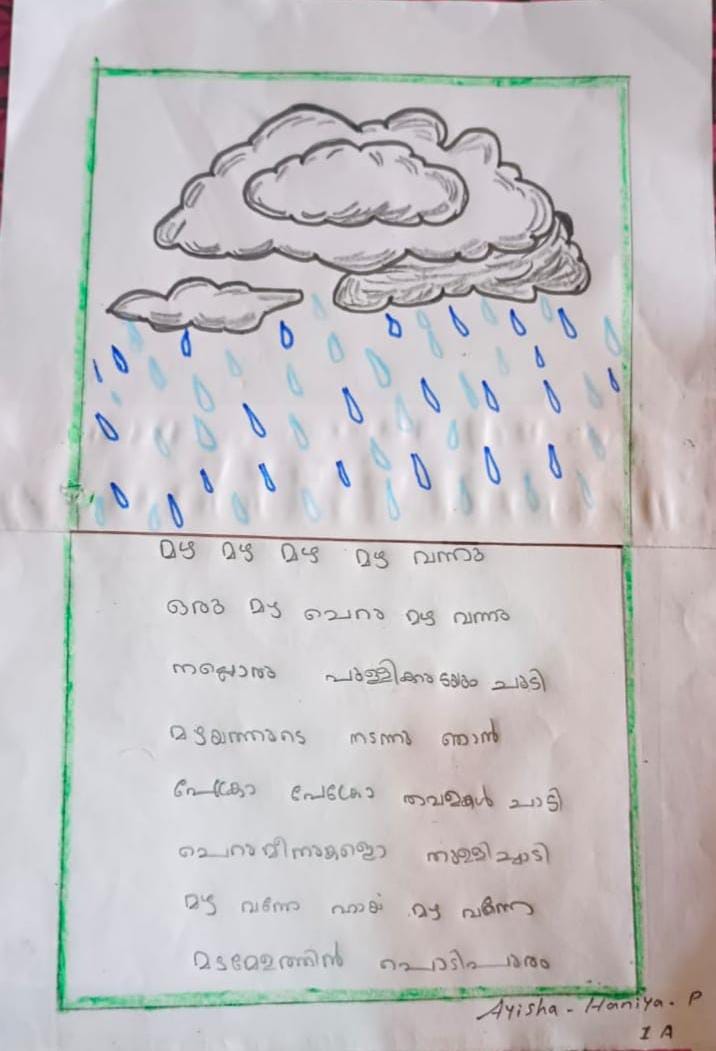 മഴ മഴ മഴ മഴ വന്നു
ഒരു മഴ ചെറു മഴ വന്നു
നല്ലൊരു പുള്ളിക്കുടയും ചൂടി
മഴയത്തൂടെ നടന്നു ഞാൻ
പേക്രോ പേക്രോ തവളകൾ ചാടി
ചെറുമീനുകളൊ തുള്ളിച്ചാടി
മഴ വന്നേ ഹായ് മഴ വന്നേ
Ayisha - Haniya. P
1 A